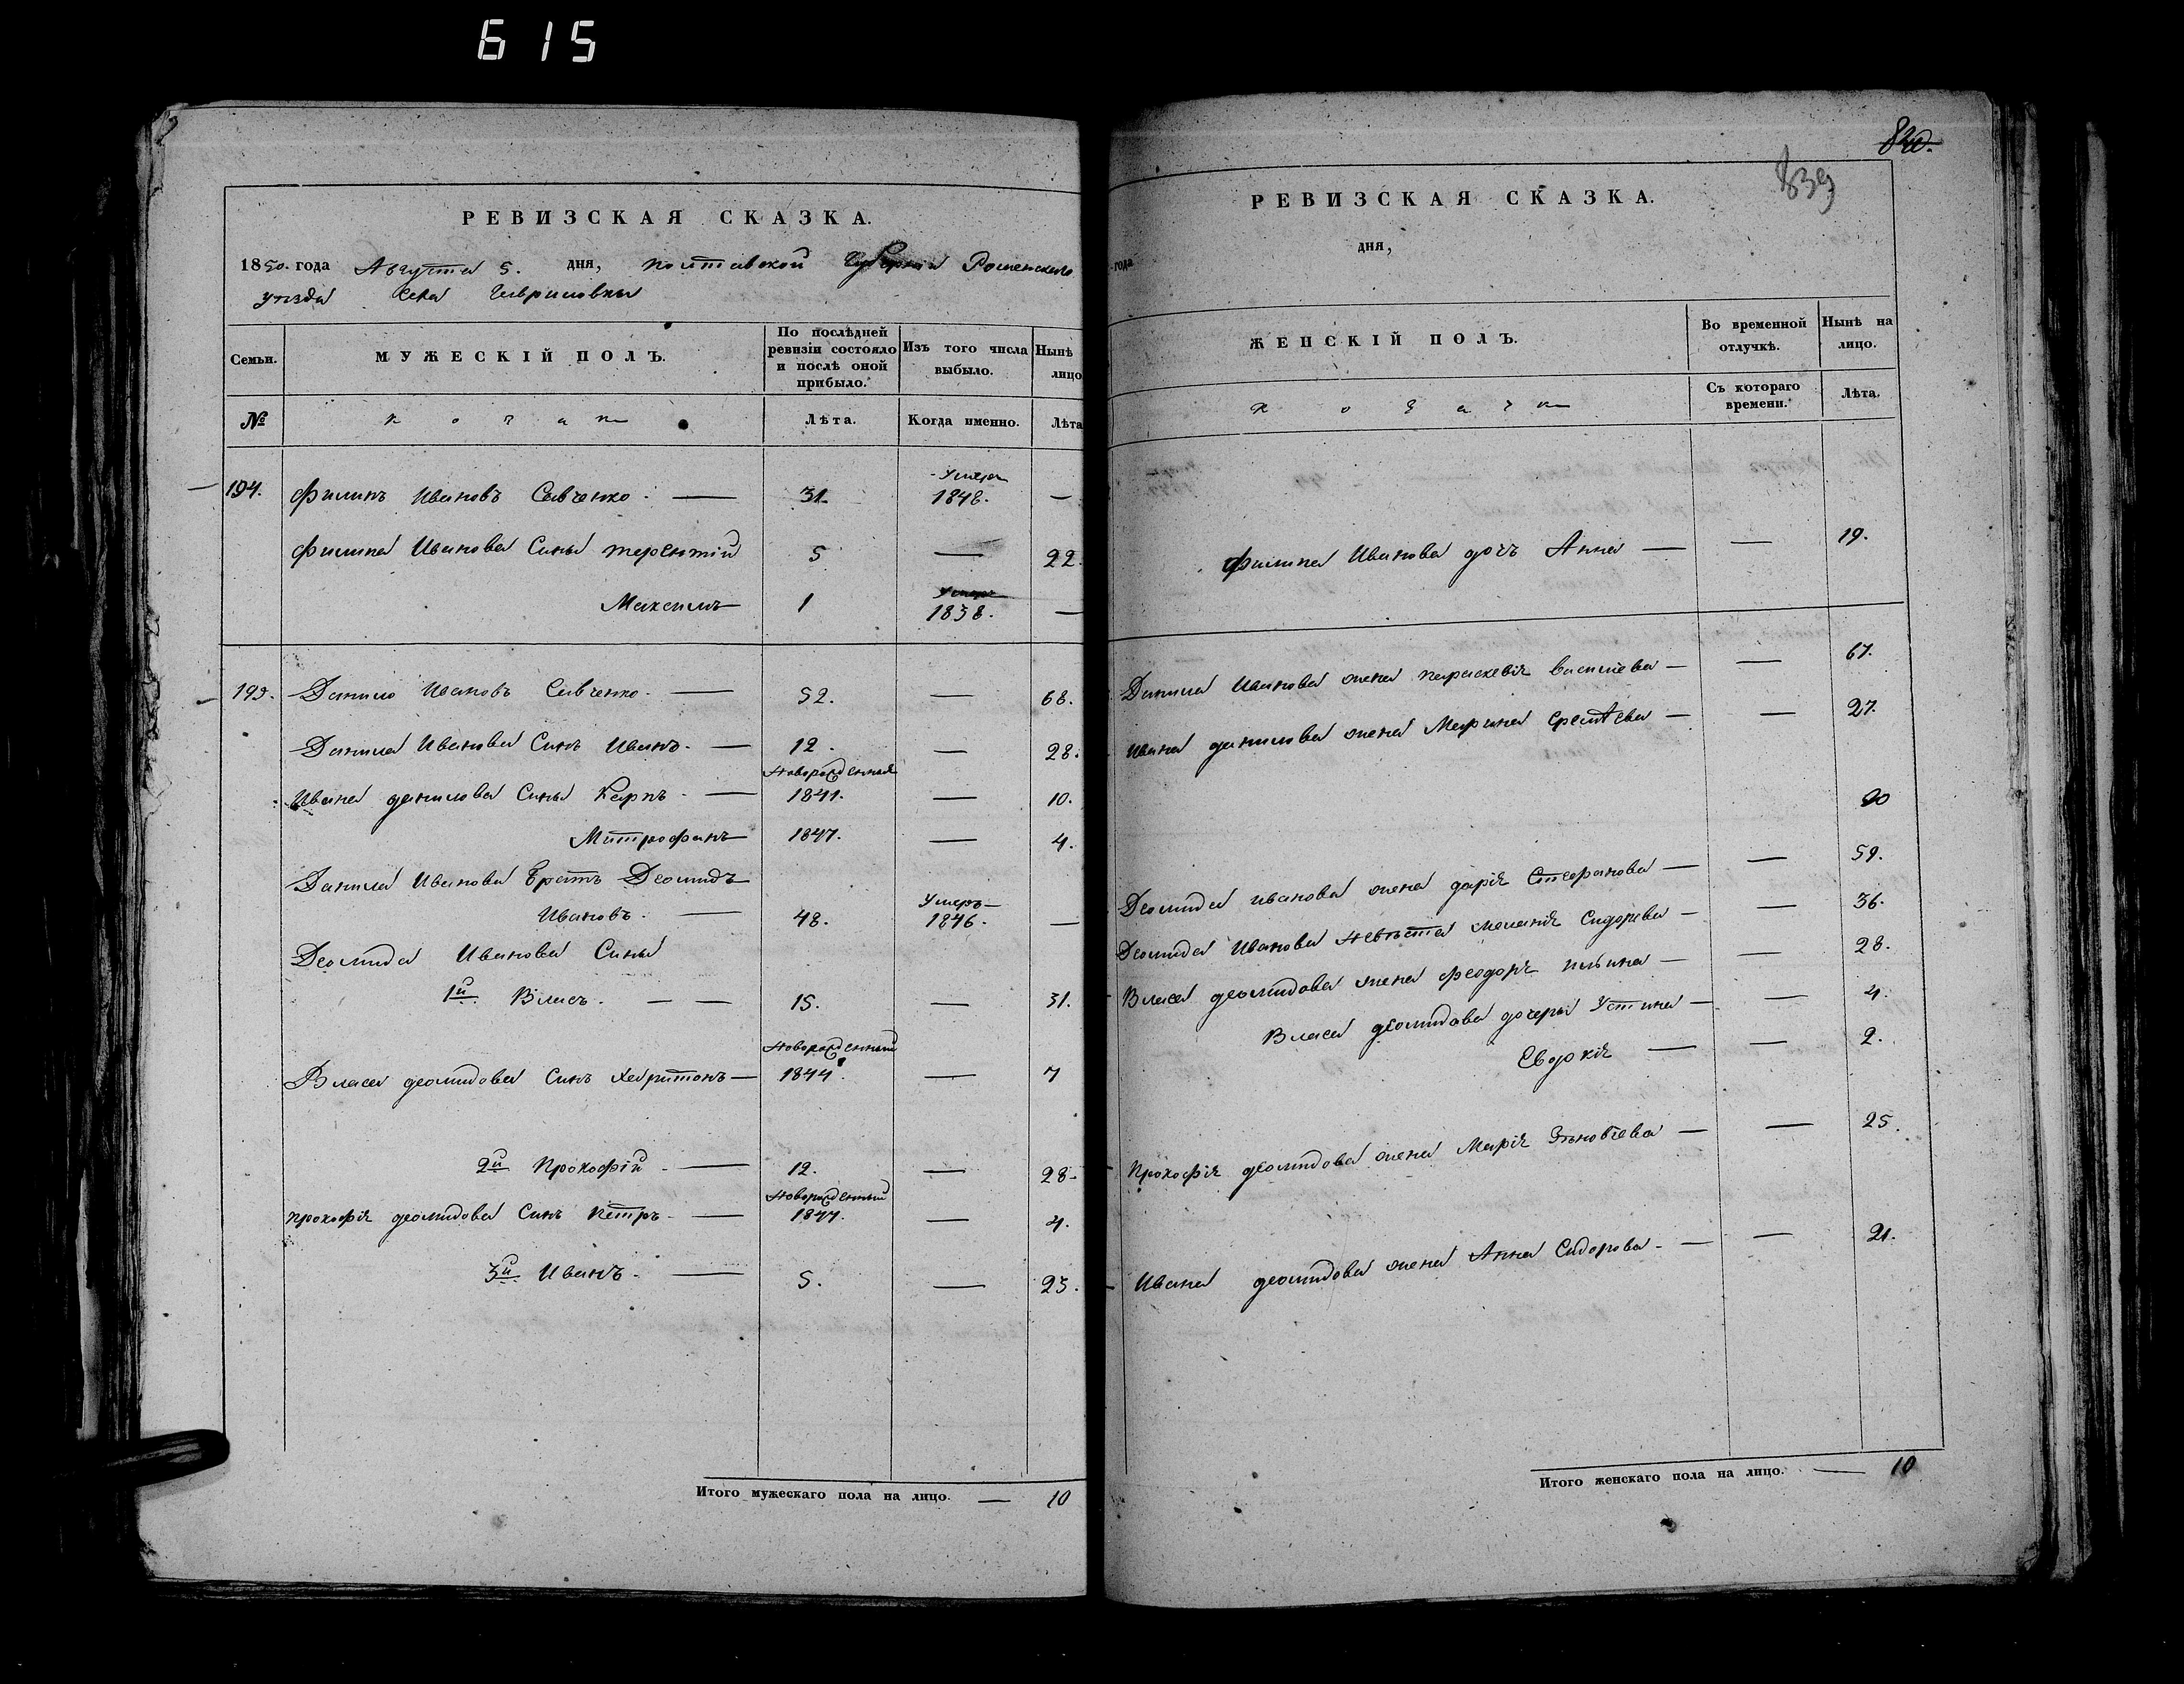 615
РЕВИЗСКАЯ СКАЗКА.
1850. года Августа 5. дня, Полтавской Губерніи Роменскаго
уѣзда Села Гавриловки
Семьи.
МУЖЕСКІЙ ПОЛЪ.
По послѣдней ревизіи состояло и послѣ оной прибыло.
Изъ того числа выбыло.
Нынѣ лицо
№
Лѣта.
Когда именно.
Лѣта
194. Филипъ Ивановъ Савченко. — 31. Умеръ 1848. —
Филипа Иванова Сины терентій 5 — 22.
Максимъ 1 Умеръ 1838. —
195. Данило Ивановъ Савченко. — 52. — 68.
Данила Иванова Синъ Иванъ. — 12. — 28.
Ивана данилова Сины Карпъ — Новорожденный 1841. — 10.
Митрофанъ 1847. — 4.
Данила Иванова Братъ Деомидъ
Ивановъ. — 48. Умеръ 1846. —
Деомида Иванова Сины
1й Власъ. — — 15. — 31.
Власа деомидова Синъ Харитонъ — Новорожденный 1844. — 7
2й Прокофій — 12. — 28.
Прокофія деомидова Синъ Петръ — Новорожденный 1847. — 4.
3й Иванъ. — 5. — 23.
Итого мужескаго пола на лицо. — 10
840.
839
РЕВИЗСКАЯ СКАЗКА.
года дня,
ЖЕНСКІЙ ПОЛЪ.
Во временной отлучкѣ.
Нынѣ на лицо.
Съ котораго времени.
Лѣта.
Филипа Иванова дочъ Анна — — 19.
Данила Иванова жена параскевія василіева — — 67.
Ивана данилова жена Марина — — 27.
Деомида иванова жена дарія Стефанова — — 59.
Деомида Иванова Невѣста меланія Сидорова — — 36.
Власа деомидова жена феодора ильина — — 28.
Власа деомидова дочери Устина — — 4.
Евдокія — — 2.
Прокофія деомидова жена Марія Зѣновіева — — 25.
Ивана деомидова жена Анна Сидорова — — 21.
Итого женскаго пола на лицо. — 10